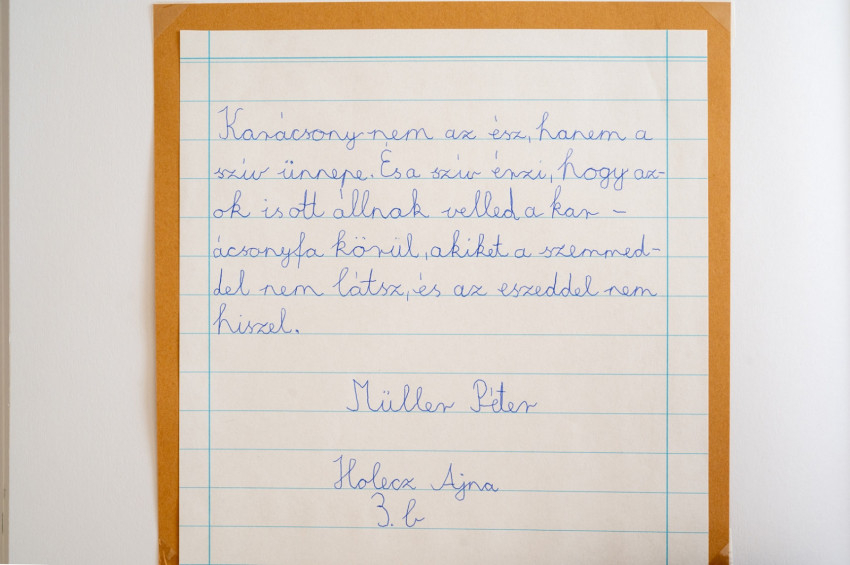 Karácsony nem az ész, hanem a
szív ünnepe. És a szív érzi, hogy az-
ok is ott állnak velled a kar -
ácsonyfa körül, akiket a szemmed-
del nem látsz, és az eszeddel nem
hiszel.
Müller Péter
Holecz Ajna
3. b